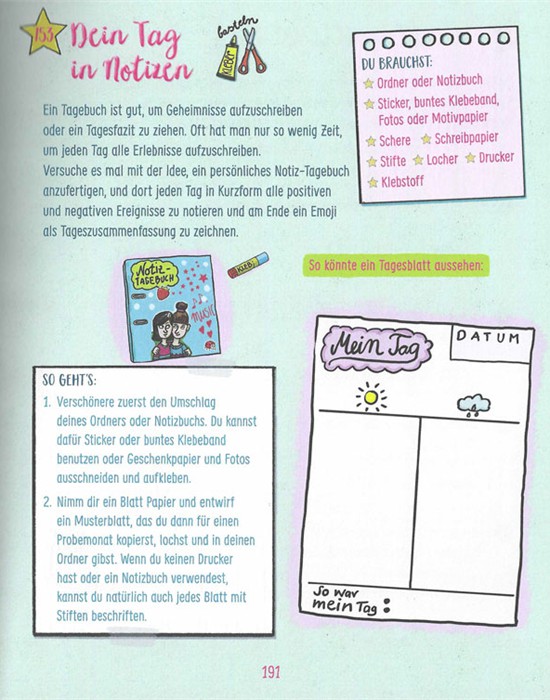 153
Dein Tag
in Notizen
basteln
KLEBER
DU BRAUCHST:
Ordner oder Notizbuch
Sticker, buntes Klebeband,
Fotos oder Motivpapier
Schere Schreibpapier
Stifte Locher Drucker
Klebstoff
Ein Tagebuch ist gut, um Geheimnisse aufzuschreiben
oder ein Tagesfazit zu ziehen. Oft hat man nur so wenig Zeit,
um jeden Tag alle Erlebnisse aufzuschreiben.
Versuche es mal mit der Idee, ein persönliches Notiz-Tagebuch
anzufertigen, und dort jeden Tag in Kurzform alle positiven
und negativen Ereignisse zu notieren und am Ende ein Emoji
als Tageszusammenfassung zu zeichnen.
Notiz-
TAGEBUCH
MUSIC
KLEBI
So könnte ein Tagesblatt aussehen:
Mein Tag
DATUM
So war
mein Tag:
SO GEHT'S:
1. Verschönere zuerst den Umschlag
deines Ordners oder Notizbuchs. Du kannst
dafür Sticker oder buntes Klebeband
benutzen oder Geschenkpapier und Fotos
ausschneiden und aufkleben.
2. Nimm dir ein Blatt Papier und entwirf
ein Musterblatt, das du dann für einen
Probemonat kopierst, lochst und in deinen
Ordner gibst. Wenn du keinen Drucker
hast oder ein Notizbuch verwendest,
kannst du natürlich auch jedes Blatt mit
Stiften beschriften.
191